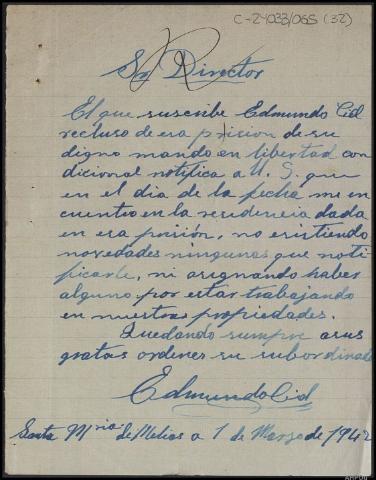 C-24033/065 (32)
Sr Director
El que suscribe Edmundo Cid
recluso de esa prision de su
digno mando en libertad con
dicional notifica a U. S. que
en el dia de la fecha me en
cuentro en la residencia dada
en esa prisión, no existiendo
novedades ningunas que noti
ficarle, ni asignando haber
alguno por estar trabajando
en nuestras propiedades.
Quedando siempre a sus
gratas ordenes su subordinado
Edmundo Cid
Santa Mria de Melias a 1 de Marzo de 1942